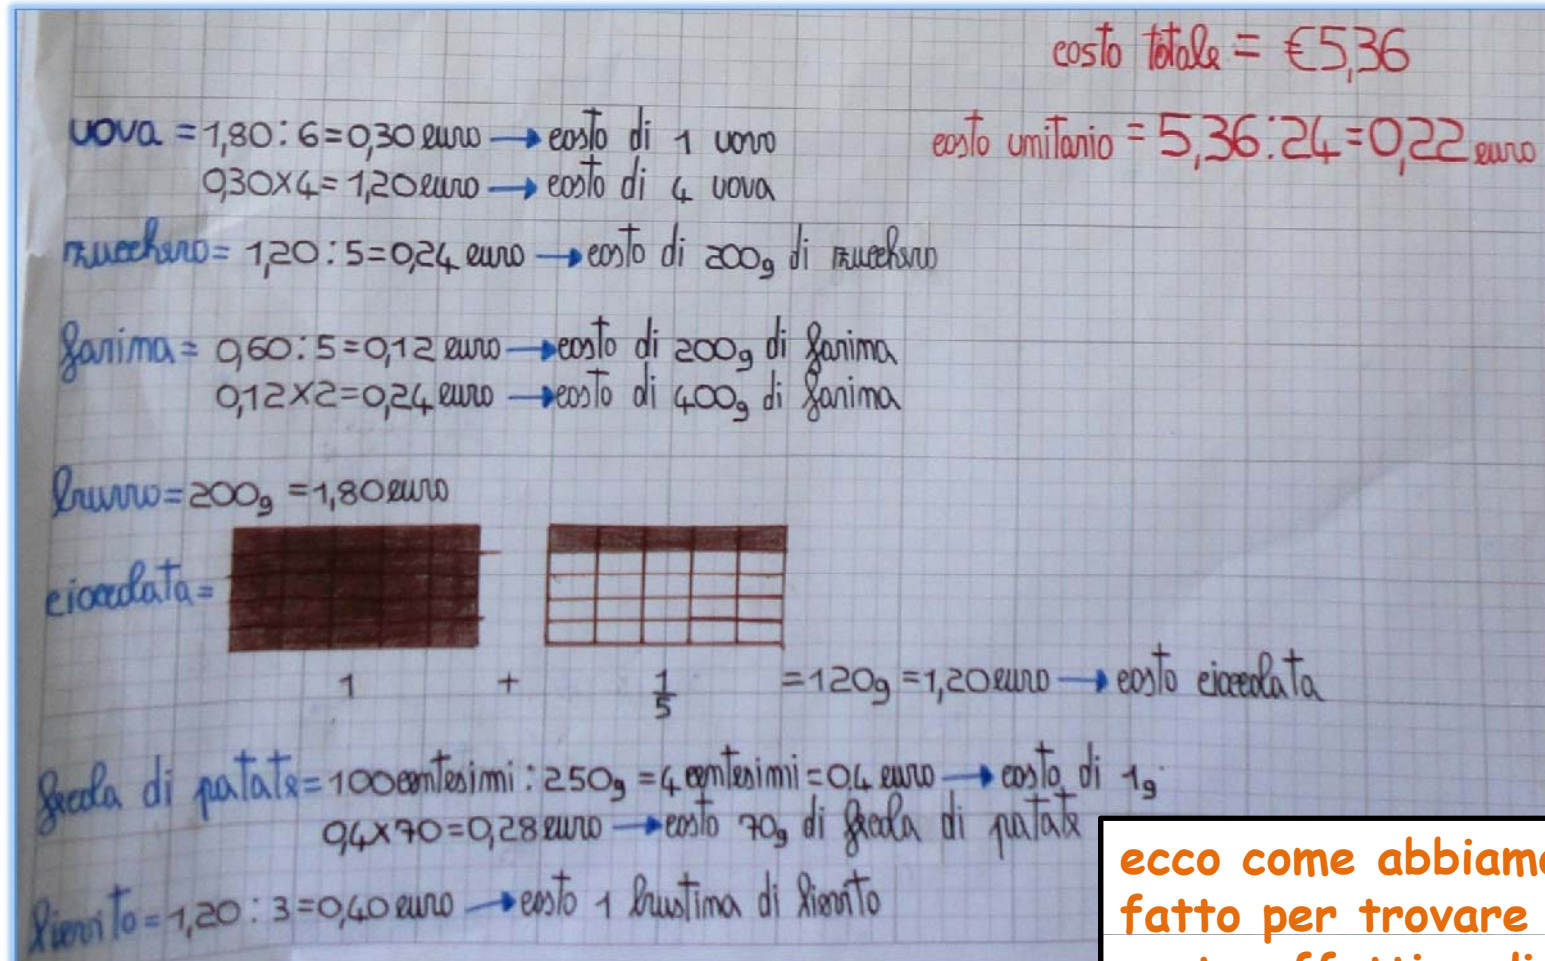 costo totale = €5,36
uova = 1,80 : 6 = 0,30 euro → costo di 1 uovo
costo unitario = 5,36 : 24 = 0,22 euro
0,30 x 4 = 1,20 euro → costo di 4 uova
zucchero = 1,20 : 5 = 0,24 euro → costo di 200g di zucchero
farina = 0,60 : 5 = 0,12 euro → costo di 200g di farina
0,12 x 2 = 0,24 euro → costo di 400g di farina
burro = 200g = 1,80 euro
cioccolata =
1 + 1/5 = 120g = 1,20 euro → costo cioccolata
fecola di patate = 100 centesimi : 250g = 4 centesimi = 0,4 euro → costo di 1g
0,4 x 70 = 0,28 euro → costo 70g di fecola di patate
lievito = 1,20 : 3 = 0,40 euro → costo 1 bustina di lievito
ecco come abbiamo
fatto per trovare